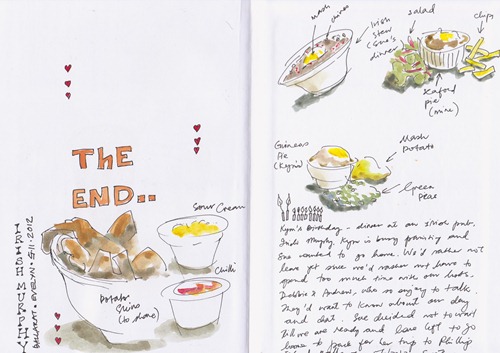 THE
END..
IRISH MURPHY
BALLARAT. EVELYN. 5.11.2012
Sour Cream
Chilli
Potato
Skins
(to share)
mash
Irish
Stew
dinner
salad
chips
Seafood
pie
(mine)
Guiness
Pie
(Kym's)
Mash
Potato
Green
Peas
Kym's Birthday - dinner at an Irish pub,
Irish Murphy. Kym is busy painting and
she wanted to go home. We'd rather not
leave yet since we'd rather not have to
spend too much time with our hosts.
Debbie & Andrew, who so enjoy to talk.
They'd want to know about our day
and chat. She decided not to wait
till we are ready and have left to go
home to pack for her trip to Phillip